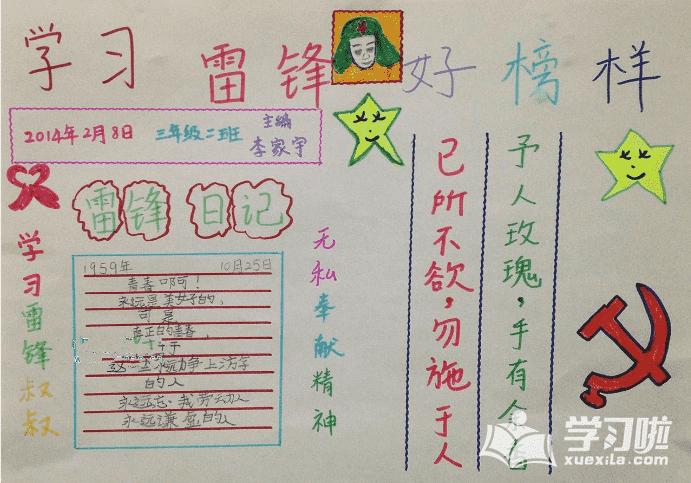 学习 雷锋 好榜样
2014年2月8日 三年级二班 主编 李家宇
雷锋 日记
学习雷锋叔叔
1959年 10月25日
青春啊！
永远是美好的，
可是
真正的青春，
于
永远力争上游
的人
永远忘我劳动
永远谦虚的人
无私奉献精神
已所不欲，勿施于人
予人玫瑰，手有余
学习啦
xuexila.com